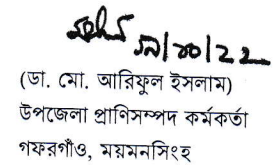 (ডা. মো. আরিফুল ইসলাম)
উপজেলা প্রাণিসম্পদ কর্মকর্তা
গফরগাঁও, ময়মনসিংহ